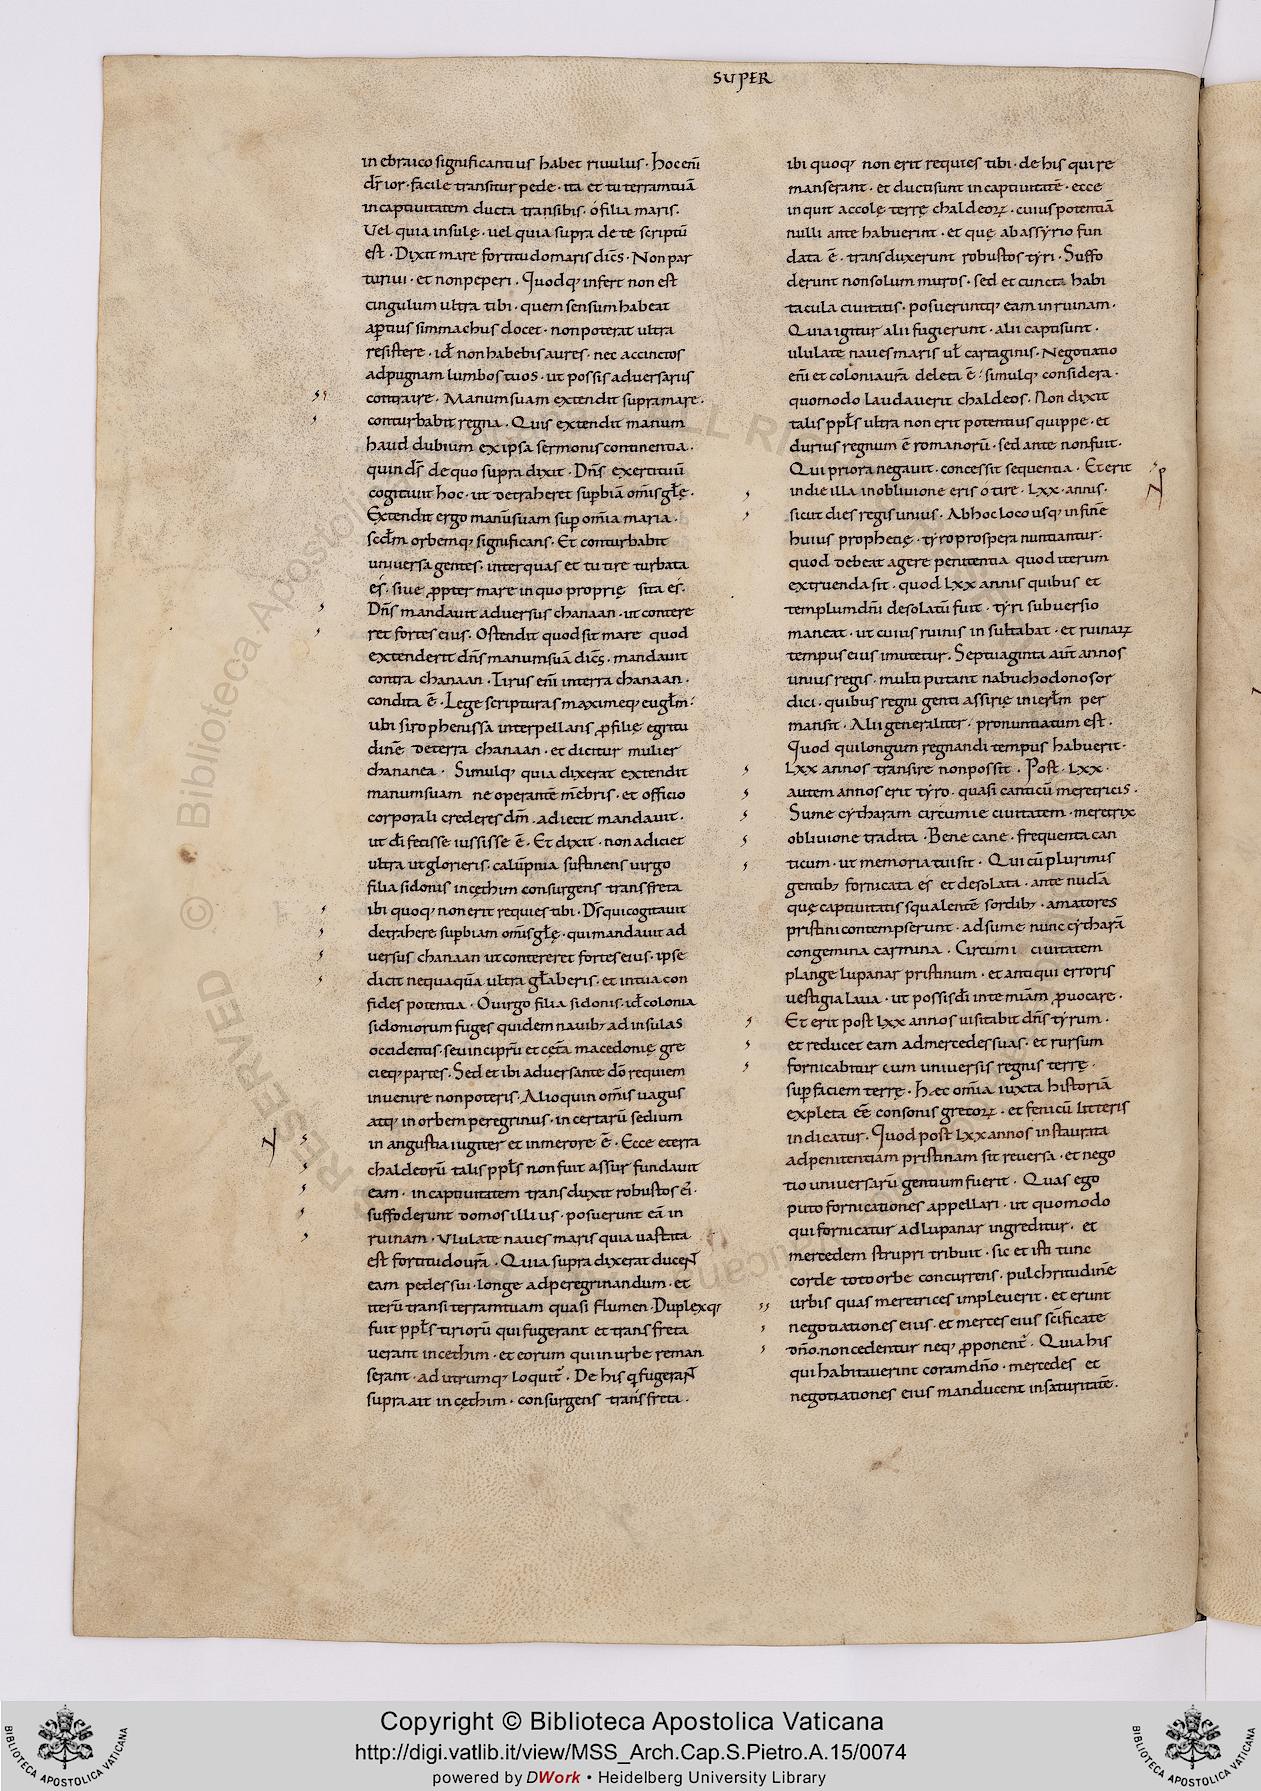 SUPER
in ebraico significantius habet riuulus · hoc eni̅
dr̅ ior · facile transitur pede · ita et tu terram tua̅
in captiuitatem ducta transibis · o filia maris ·
Vel quia insulę · uel quia supra de te scriptu̅
est · Dixit mare fortitudo maris dice̅s · Non par
turiui · et non peperi · Quodq; infert non est
cingulum ultra tibi · quem sensum habeat
apertius simmachus docet · non poterat ultra
resistere · id̅ non habebis aures · nec accinctos
ad pugnam lumbos tuos · ut possis aduersarius
contraire · Manum suam extendit supra mare ·
conturbabit regna · Quis extendit manum
haud dubium ex ipsa sermonis continentia ·
quin d̅s de quo supra dixit · Dn̅s exertituu̅
cogitauit hoc · ut detraheret sup̅bia̅ om̅is gl̅ę ·
Extendit ergo manu̅ suam sup̅ om̅ia maria ·
secd̅m orbemq; significans · Et conturbabit
uniuersa gentes · inter quas et tu tire turbata
es · siue p̱pter mare in quo proprię sita es ·
Dn̅s mandauit aduersus chanaan · ut contere
ret fortes eius · Ostendit quod sit mare quod
extenderit dn̅s manum sua̅ dice̅s · mandauit
contra chanaan · Tirus eni̅ in terra chanaan ·
condita e̅ · Lege scripturas maximeq; eugl̅m ·
ubi sirophenissa interpellans p̱ filię egritu
dine̅ de terra chanaan · et dicitur mulier
chananea · Simulq; quia dixerat extendit
manum suam ne operante̅ me̅bris · et officio
corporali crederes d̅m · adiecit mandauit ·
ut d̅i fecisse iussisse e̅ · Et dixit · non adiciet
ultra ut glorieris · calu̅pnia sustinens uirgo
filia sidonis in cęthim consurgens transfreta
ibi quoq; non erit requies tibi · D̅s qui cogitauit
detrahere sup̅biam om̅is gl̅ę · qui mandauit ad
uersus chanaan ut contereret fortes eius · ipse
dicit nequaqua̅ ultra gl̅aberis · et in tua con
fides potentia · O uirgo filia sidonis · id̅ colonia
sidoniorum fuges quidem nauib; ad insulas
occidentis · seu in cipru̅ et cęt̅a macedonię gre
cieq; partes · Sed et ibi aduersante d̅o requiem
inuenire non poteris · Alioquin om̅is uagus
atq; in orbem peregrinus · in certaru̅ sedium
in angustia iugiter et in merore e̅ · Ecce eterra
chaldeoru̅ talis ppl̅s non fuit assur fundauit
eam · in captiuitatem transduxit robustos ei̅ ·
suffoderunt domos illius · posuerunt ea̅ in
ruinam · Vlulate naues maris quia uastita
est fortitudo ur̅a · Quia supra dixerat ducen̅t
eam pedes sui · longe ad peregrinandum · et
iteru̅ transi terram tuam quasi flumen · Duplexq;
fuit ppl̅s tirioru̅ qui fugerant et transfreta
uerant in cethim · et eorum qui in urbe reman
serant · ad utrumq; loquit̅ · De his q̅ fugeran̅t
supra ait in cęthim · consurgens transfreta ·
ibi quoq; non erit requies tibi · de his qui re
manserant · et ducti sunt in captiuitate̅ · ecce
inquit accolę terrę chaldeoꝝ · cuius potentia̅
nulli ante habuerint · et quę ab assyrio fun
data e̅ · transduxerunt robustos tyri · Suffo
derunt non solum muros · sed et cuncta habi
tacula ciuitatis · posueruntq; eam in ruinam ·
Quia igitur alii fugierunt · alii capti sunt ·
ululate naues maris ul̅ cartaginis · Negotiatio
eni̅ et colonia ur̅a deleta e̅ · simulq; considera ·
quomodo laudauerit chaldeos · Non dixit
talis ppl̅s ultra non erit potentius quippe · et
durius regnum e̅ romanoru̅ · sed ante non fuit ·
Qui priora negauit · concessit sequentia · Et erit
in die illa in obliuione eris o tire · LXX · annis ·
sicut dies regis unius · Ab hoc loco usq; in fine̅
huius prophetię · tyro prospera nuntiantur ·
quod debeat agere penitentia quod iterum
extruenda sit · quod LXX annis quibus et
templum dn̅i desolatu̅ fuit · tyri subuersio
maneat · ut cuius ruinis insultabat · et ruinaꝝ
tempus eius imitetur · Septuaginta aut̅ annos
unius regis · multi putant nabuchodonosor
dici · quibus regni genti assirię in ierl̅m per
mansit · Alii generaliter · pronuntiatum est ·
Quod qui longum regnandi tempus habuerit ·
LXX annos transire non possit · Post · LXX ·
autem annos erit tyro · quasi canticu̅ meretricis ·
Sume cytharam circumie ciuitatem · meretrix
obliuione tradita · Bene cane · frequenta can
ticum · ut memoria tui sit · Qui cu̅ plurimis
gentib; fornicata es et desolata · ante nuda̅
quę captiuitatis squalente̅ sordib; · amatores
pristini contempserunt · adsume nunc cythara̅
congemina carmina · Circumi ciuitatem
plange lupanar pristinum · et antiqui erroris
uestigia laua · ut possis d̅i in te mia̅m p̱uocare ·
Et erit post LXX annos uisitabit dn̅s tyrum ·
et reducet eam ad mercedes suas · et rursum
fornicabitur cum uniuersis regnis terrę ·
sup̅ faciem terrę · Hæc om̅ia iuxta historia̅
expleta e̅e̅ consonis gretoꝝ · et fenicu̅ litteris
indicatur · Quod post LXX annos instaurata
ad penitentiam pristinam sit reuersa · et nego
tio uniuersaru̅ gentium fuerit · Quas ego
puto fornicationes appellari · ut quomodo
qui fornicatur ad lupanar ingreditur · et
mercedem strupri tribuit · sic et isti tunc
corde toto orbe concurrens · pulchritudine̅
urbis quas meretrices impleuerit · et erunt
negotiationes eius · et merces eius sci̅ficate
dn̅o · non cedentur neq; p̱ponent̅ · Quia his
qui habitauerint coram dn̅o · mercedes et
negotiationes eius manducent in saturitate̅ ·
© Biblioteca Apostolica Vaticana
ALL RIGHTS RESERVED
Copyright © Biblioteca Apostolica Vaticana
http://digi.vatlib.it/view/MSS_Arch.Cap.S.Pietro.A.15/0074
powered by DWork • Heidelberg University Library
BIBLIOTECA APOSTOLICA VATICANA
BIBLIOTECA APOSTOLICA VATICANA